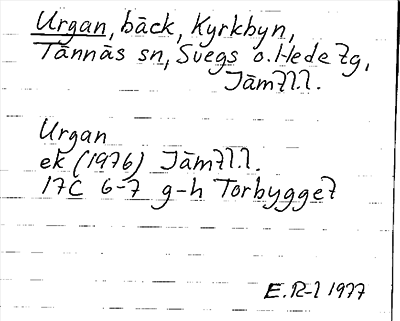 Urgan, bäck, Kyrkbyn,
Tännäs sn, Svegs o. Hede tg,
Jämtl.l.
Urgan
ek (1976) Jämtl.l.
17C 6-7 g-h Torbygget
E.R-l 1977